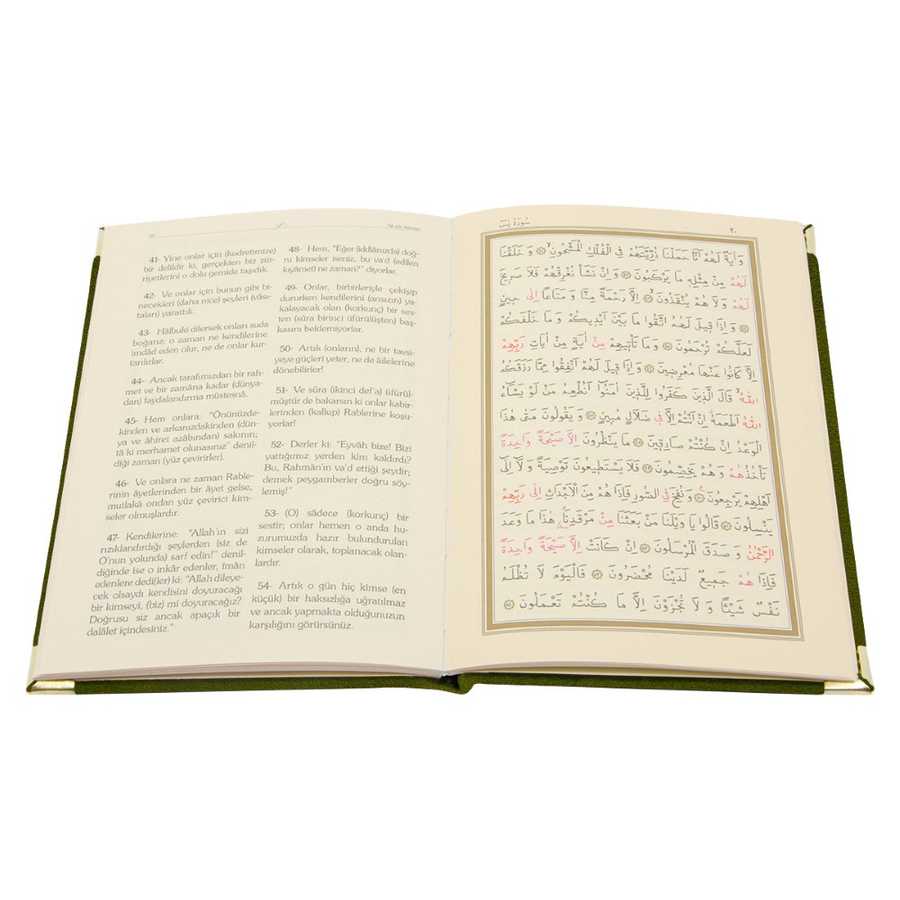 41- Yine onlar için (kudretimize)
bir delildir ki, gerçekten biz zür-
riyetlerini o dolu gemide taşıdık.
42- Ve onlar için bunun gibi bi-
necekleri (daha nice) şeyleri (vâsı-
taları) yarattık.
43- Hâlbuki dilersek onları suda
boğarız; o zaman ne kendilerine
imdâd eden olur, ne de onlar kur-
tarılırlar.
44- Ancak tarafımızdan bir rah-
met ve bir zamâna kadar (dünya-
dan) faydalandırma müstesnâ.
45- Hem onlara: "Önünüzde-
kinden ve arkanızdakinden (dün-
ya ve âhiret azâbından) sakının;
tâ ki merhamet olunasınız" denil-
diği zaman (yüz çevirirler).
46- Ve onlara ne zaman Rable-
rinin âyetlerinden bir âyet gelse,
mutlakâ ondan yüz çevirici kim-
seler olmuşlardır.
47- Kendilerine: "Allah'ın sizi
rızıklandırdığı şeylerden (siz de
O'nun yolunda) sarf edin!" denil-
diğinde ise o inkâr edenler, îmân
edenlere dedi(ler) ki: "Allah dileye-
cek olsaydı kendisini doyuracağı
bir kimseyi, (biz) mi doyuracağız?
Doğrusu siz ancak apaçık bir
dalâlet içindesiniz."
48- Hem, "Eğer (iddiânızda) doğ-
ru kimseler iseniz, bu va'd (edilen
kıyâmet) ne zaman?" diyorlar.
49- Onlar, birbirleriyle çekişip
dururken kendilerini (ansızın) ya-
kalayacak olan (korkunç) bir ses-
ten (sûra birinci üfürülüşten) baş-
kasını beklemiyorlar.
50- Artık (onların), ne bir tavsi-
yeye güçleri yeter, ne de âilelerine
dönebilirler!
51- Ve sûra (ikinci def'a) üfürül-
müştür de bakarsın ki onlar kabir-
lerinden (kalkıp) Rablerine koşu-
yorlar!
52- Derler ki: "Eyvâh bize! Bizi
yattığımız yerden kim kaldırdı?
Bu, Rahmân'ın va'd ettiği şeydir;
demek peygamberler doğru söy-
lemiş!"
53- (O) sâdece (korkunç) bir
sestir; onlar hemen o anda hu-
zurumuzda hazır bulundurulan
kimseler olarak, toplanacak olan-
lardır.
54- Artık o gün hiç kimse (en
küçük) bir haksızlığa uğratılmaz
ve ancak yapmakta olduğunuzun
karşılığını görürsünüz.
٢٠ سُورَةُ يٰسٓ
وَاٰيَةٌ لَهُمْ اَنَّا حَمَلْنَا ذُرِّيَّتَهُمْ فِى الْفُلْكِ الْمَشْحُونِ ﴿٤١﴾ وَخَلَقْنَا
لَهُمْ مِنْ مِثْلِهِ مَا يَرْكَبُونَ ﴿٤٢﴾ وَاِنْ نَشَأْ نُغْرِقْهُمْ فَلَا صَرِيخَ
لَهُمْ وَلَا هُمْ يُنْقَذُونَ ﴿٤٣﴾ اِلَّا رَحْمَةً مِنَّا وَمَتَاعًا اِلٰى حِينٍ
﴿٤٤﴾ وَاِذَا قِيلَ لَهُمُ اتَّقُوا مَا بَيْنَ اَيْدِيكُمْ وَمَا خَلْفَكُمْ
لَعَلَّكُمْ تُرْحَمُونَ ﴿٤٥﴾ وَمَا تَأْتِيهِمْ مِنْ اٰيَةٍ مِنْ اٰيَاتِ رَبِّهِمْ
اِلَّا كَانُوا عَنْهَا مُعْرِضِينَ ﴿٤٦﴾ وَاِذَا قِيلَ لَهُمْ اَنْفِقُوا مِمَّا رَزَقَكُمُ
اللهُ قَالَ الَّذِينَ كَفَرُوا لِلَّذِينَ اٰمَنُوا اَنُطْعِمُ مَنْ لَوْ يَشَاءُ
اللهُ اَطْعَمَهُ اِنْ اَنْتُمْ اِلَّا فِى ضَلَالٍ مُبِينٍ ﴿٤٧﴾ وَيَقُولُونَ مَتٰى هٰذَا
الْوَعْدُ اِنْ كُنْتُمْ صَادِقِينَ ﴿٤٨﴾ مَا يَنْظُرُونَ اِلَّا صَيْحَةً وَاحِدَةً
تَأْخُذُهُمْ وَهُمْ يَخِصِّمُونَ ﴿٤٩﴾ فَلَا يَسْتَطِيعُونَ تَوْصِيَةً وَلَا اِلٰى
اَهْلِهِمْ يَرْجِعُونَ ﴿٥٠﴾ وَنُفِخَ فِى الصُّورِ فَاِذَا هُمْ مِنَ الْاَجْدَاثِ اِلٰى رَبِّهِمْ
يَنْسِلُونَ ﴿٥١﴾ قَالُوا يَا وَيْلَنَا مَنْ بَعَثَنَا مِنْ مَرْقَدِنَا هٰذَا مَا وَعَدَ
الرَّحْمٰنُ وَصَدَقَ الْمُرْسَلُونَ ﴿٥٢﴾ اِنْ كَانَتْ اِلَّا صَيْحَةً وَاحِدَةً
فَاِذَا هُمْ جَمِيعٌ لَدَيْنَا مُحْضَرُونَ ﴿٥٣﴾ فَالْيَوْمَ لَا تُظْلَمُ
نَفْسٌ شَيْئًا وَلَا تُجْزَوْنَ اِلَّا مَا كُنْتُمْ تَعْمَلُونَ ﴿٥٤﴾